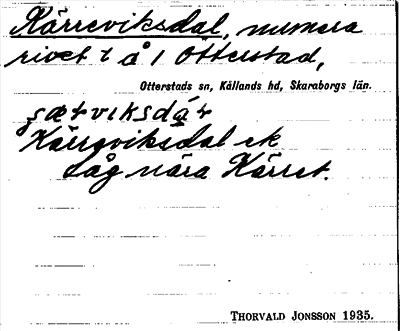 Kärreviksdal, numera
rivet t å 1 Otterstad,
Otterstads sn, Kållands hd, Skaraborgs län.
Kärrgviksdal ek
Låg nära Kärret.
THORVALD JONSSON 1935.